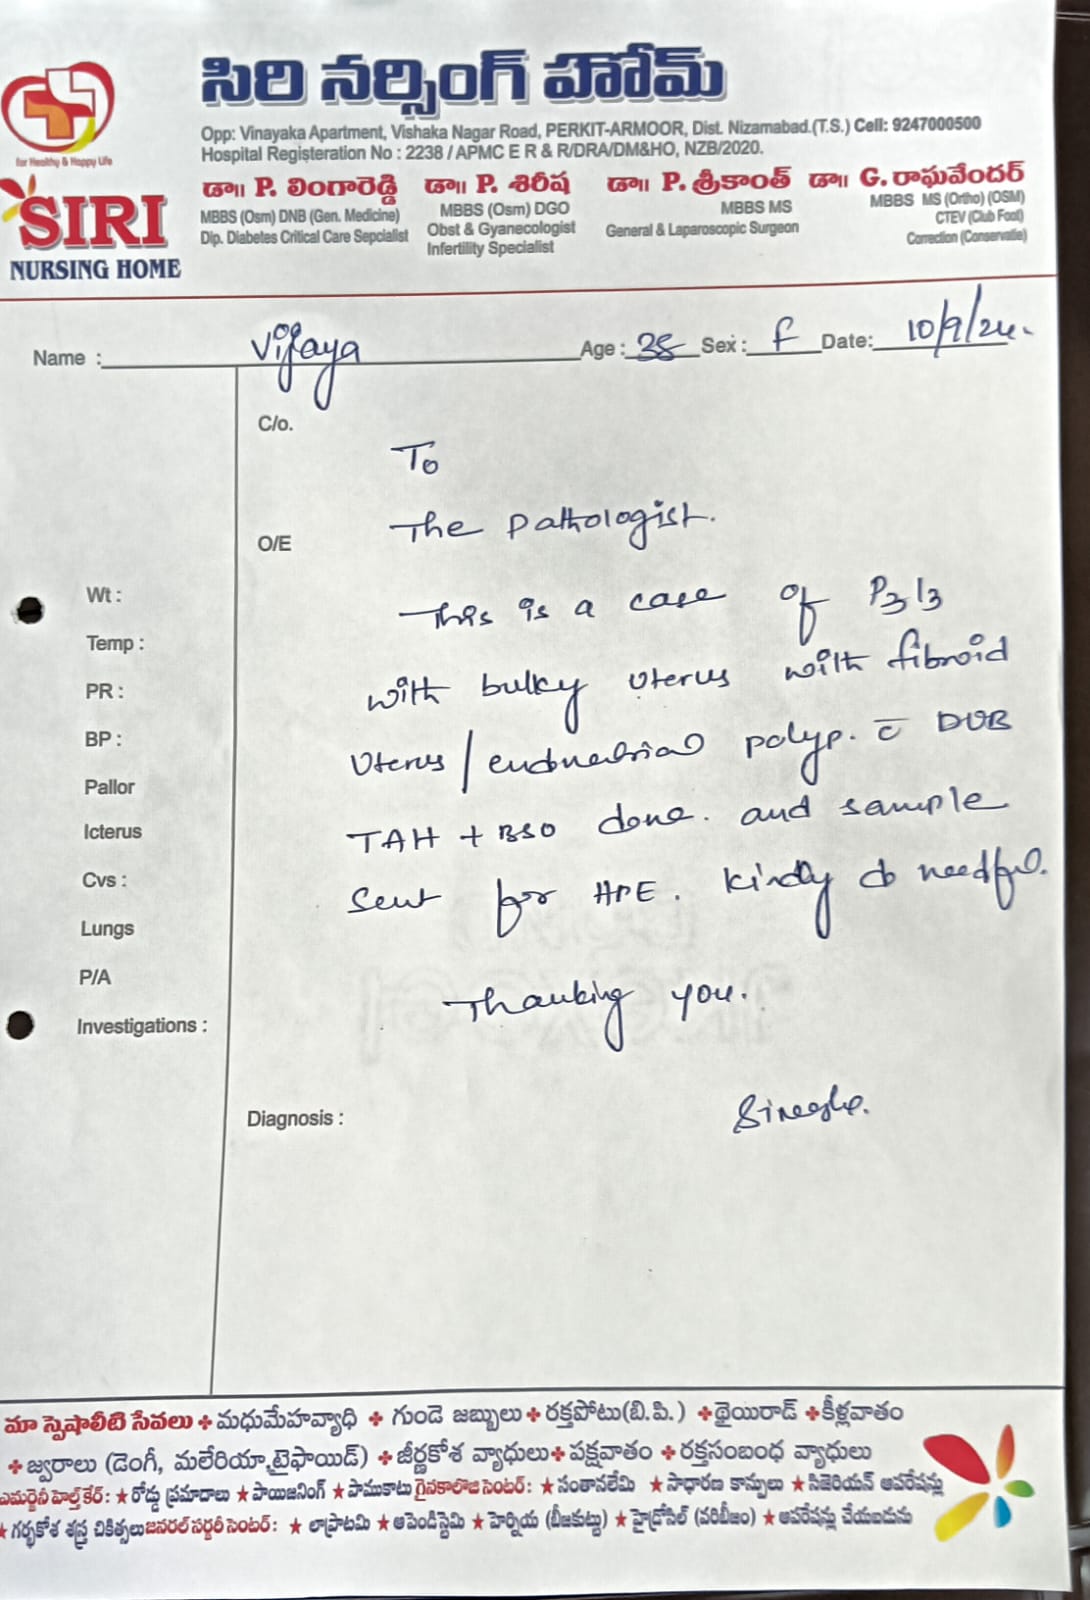 సిరి నర్సింగ్ హోమ్
for Healthy & Happy Life
SIRI
NURSING HOME
Opp: Vinayaka Apartment, Vishaka Nagar Road, PERKIT-ARMOOR, Dist. Nizamabad.(T.S.) Cell: 9247000500
Hospital Registeration No : 2238 / APMC E R & R/DRA/DM&HO, NZB/2020.
డా॥ P. లింగారెడ్డి
MBBS (Osm) DNB (Gen. Medicine)
Dip. Diabetes Critical Care Sepcialist
డా॥ P. శిరీష
MBBS (Osm) DGO
Obst & Gyanecologist
Infertility Specialist
డా॥ P. శ్రీకాంత్
MBBS MS
General & Laparoscopic Surgeon
డా॥ G. రాఘవేందర్
MBBS MS (Ortho) (OSM)
CTEV (Club Foot)
Correction (Conservatie)
Name : Vijaya Age : 38 Sex : F Date: 10/9/24.
C/o.
To
The pathologist.
O/E
This is a case of P3l3
with bulky uterus with fibroid
uterus / endometrial polyp. c̅ DUB
TAH + BSO done. and sample
sent for HPE. Kindly do needful.
Thanking you.
Wt :
Temp :
PR :
BP :
Pallor
Icterus
Cvs :
Lungs
P/A
Investigations :
Diagnosis :
మా స్పెషాలిటి సేవలు ✤ మధుమేహవ్యాధి ✤ గుండె జబ్బులు ✤ రక్తపోటు(బి.పి.) ✤ థైయిరాడ్ ✤ కీళ్లవాతం
✤ జ్వరాలు (డెంగీ, మలేరియా,టైఫాయిడ్) ✤ జీర్ణకోశ వ్యాధులు ✤ పక్షవాతం ✤ రక్తసంబంధ వ్యాధులు
ఎమర్జెనీ హెల్త్ కేర్: ★ రోడ్డు ప్రమాదాలు ★ పాయిజనింగ్ ★ పాముకాటు గైనకాలజి సెంటర్: ★ సంతానలేమి ★ సాధారణ కాన్పులు ★ సిజెరియన్ ఆపరేషన్లు
★ గర్భకోశ శస్త్ర చికిత్సలు జనరల్ సర్జరీ సెంటర్: ★ లాప్రాటమి ★ అపెండిస్టెమి ★ హెర్నియ (బీజకుట్టు) ★ హైడ్రోసిల్ (వరిబీజం) ★ ఆపరేషన్లు చేయబడును